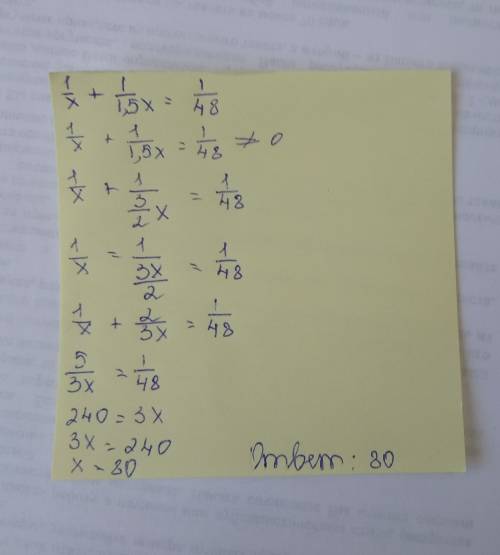 1/x + 1/1,5x = 1/48
1/x + 1/1,5x = 1/48 ≠ 0
1/x + 1/(3/2 x) = 1/48
1/x = 1/(3x/2) = 1/48
1/x + 2/3x = 1/48
5/3x = 1/48
240 = 3x
3x = 240
x = 80
Ответ: 80